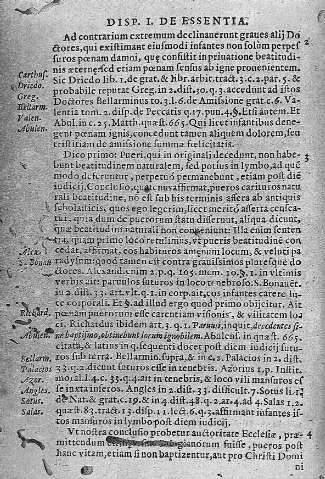 DISP. I. DE ESSENTIA.
Ad contrarium extremum declinauerunt graues alij Do
ctores, qui existimant eiusmodi infantes non solùm perpes
suros pœnam damni, quæ consistit in priuatione beatitudi-
nis æternę, sed etiam pœnam sensus ab igne prouenientem.
Carthus. Sic Driedo lib. 1. de grat. & libr. arbitr. tract. 3. c. 2. par. 5. &
Driedo. probabile reputat Greg. in 2. dist. 30. q. 3. accedunt ad istos
Greg. Doctores Bellarminus to. 3. l. 6. de Amissione grat. c. 6. Va-
Bellarm. lentia tom. 2. disp. 6. de Peccatis q. 17. pun. 4. §. Etsi autem. Et
Valen. Abul. in c. 25. Matth. quæst. 665. Qui licet infantibus dene-
Abulen. gent pœnam ignis, concedunt tamen aliquem dolorem, seu
tristitiam de amissione summæ felicitatis.
Dico primo: Pueri, qui in originali decedunt, non habe-
bunt beatitudinem naturalem, sed potius in lymbo, ad quē
modo deferuntur, perpetuò permanebunt, etiam post diē
iudicij. Conclusio, quatenus affirmat, pueros carituros natu
rali beatitudine, nō est sub his terminis assera ab antiquis
scholasticis, quos ego legerim, licet meritò asserta censea-
tur, quia dum de puerorum statu disserunt, aliqua dicunt,
quæ beatitudini naturali non conueniunt: Illa enim senten
tia, quam primo loco retulimus, vt pueris beatitudinē con
Alex. cedat, affirmat, eos habituros amœnum locum, & veluti pa
S. Bonau. radysum: quod tamen est contra grauissimos plerosque do
ctores. Alexandr. enim 2. p. q. 105. mem. 10. §. 1. in vltimis
verbis ait: paruulos futuros in loco tenebroso. S. Bonauēt.
in 2. dist. 33. art. vlt. q. 1. in corp. aït, eos infantes carere lu-
ce corporali. Et §. ad illud ergo quod primo obijcitur. Ait
pœnam puerorum esse carentiam visionis, & vilitatem lo-
Richard. ci. Richardus ibidem art. 3. q. 1. Paruuli, inquit, decedentes si-
Abulen. ne baptismo, obtinebunt locum ignobilem. Abulens. in quæst. 665.
citata, & futuros inquit decedenti docet post diem iudicij futu-
Bellarm. ros sub terra. Bellarmin. supra, & in c. 2. Palacios in 2. dist.
Palacios 33. q. 2. dicunt futuros esse in tenebris. Azorius 1. p. Justit.
Azor. moral. l. 4. c. 33. q. 4. ait in tenebris, & loco vili mansuros es
Angles. se infra inferos. Angles in 2. dist. 33. difficult. 7. Sotus li. 1.
Sotus. de Nat. & grat. c. 19. & in 4. dist. 48. q. 2. ar. 4. ad 4. Salas 1. 2.
Salas. quæst. 83. tract. 13. disp. 11. sect. 6. q. 3. affirmant infantes is-
tos mansuros in lympo post diem iudicij.
Vt nostra conclusio probetur auctoritate Ecclesiæ, præ-
mittendum Pelagianorum fuisse, pueros post
hanc vitam, etiam si non baptizentur, aut pro Christi Domi
ni